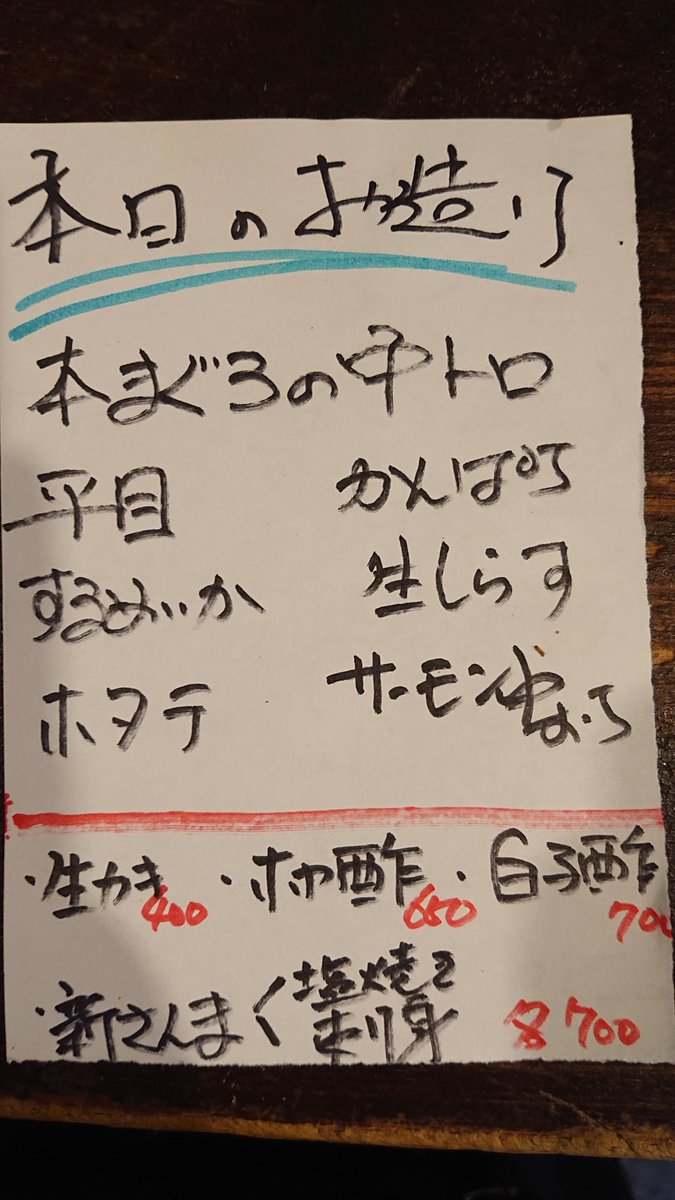 本日のお造り
本まぐろの中トロ
平目 かんぱち
するめいか 生しらす
ホタテ サーモン
・生カキ 400 ・ホヤ酢 650 ・白子酢 700
・新さんま〈 塩焼き
刺身 700